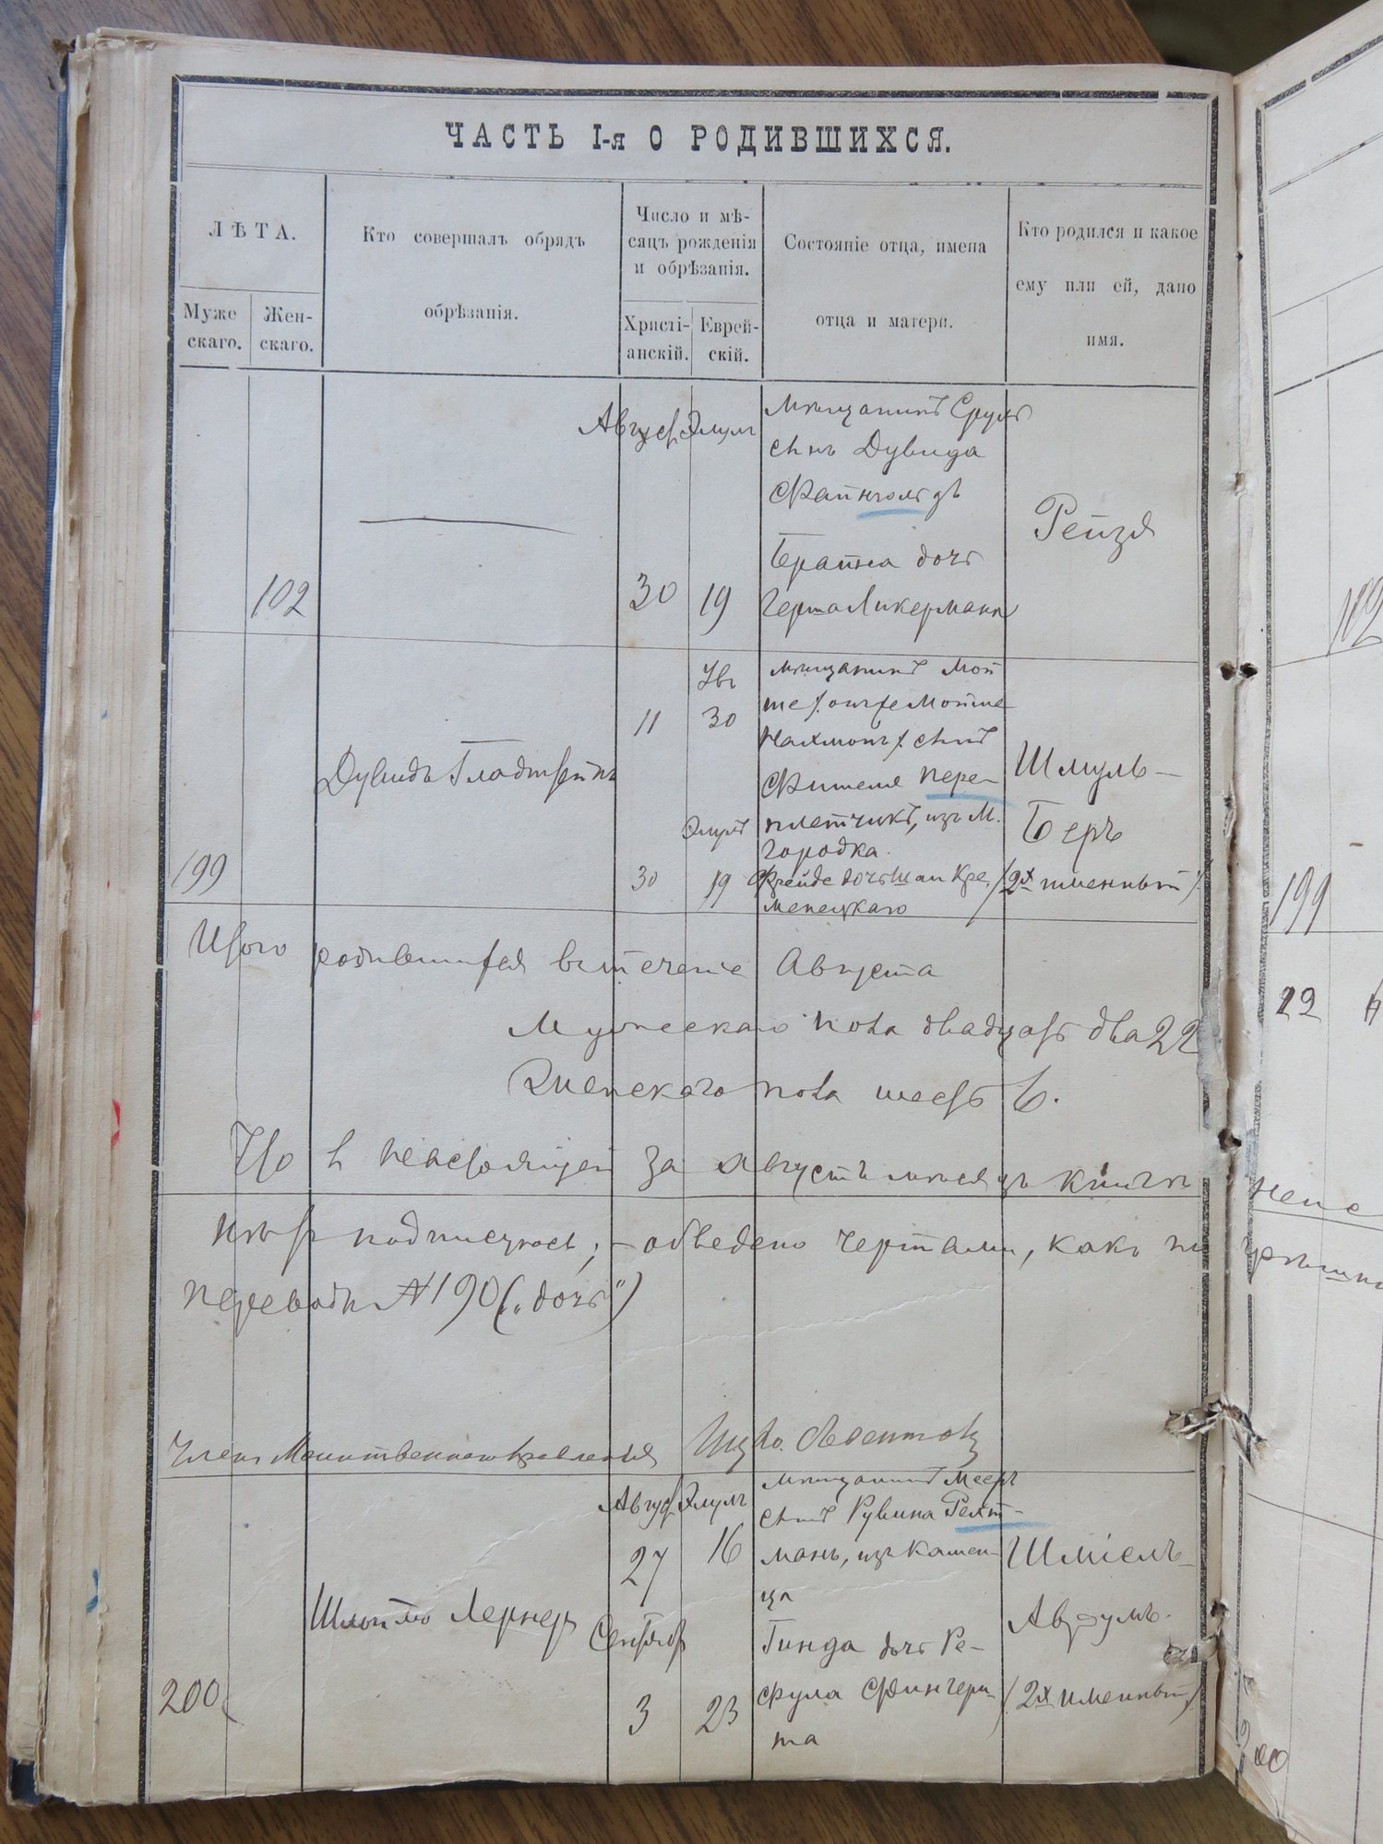 ЧАСТЬ I-я О РОДИВШИХСЯ.
ЛѢТА.
Муже
скаго.
Жен-
скаго.
Кто совершалъ обрядъ
обрѣзанія.
Число и мѣ-
сяцъ рожденія
и обрѣзанія.
Христі-
анскій.
Еврей-
скій.
Состояніе отца, имена
отца и матери.
Кто родился и какое
ему или ей, дано
имя.
102
Август
30
Элулъ
19
мѣщанинъ Сруль
сынъ Дувида
Файнгольдъ
дочь
Герша Ликермана
Рейзя
199
Дувидъ Гладштейнъ
11
30
30
Элулъ
19
мѣщанинъ Мой
ше /онже Мойше
Нахмонъ/ сынъ
Фишеля пере-
плетчикъ, изъ М.
городка.
Фрейде дочь Шаи Кре-
менецкаго
Шмуль-
Беръ
/2х именный/
Итого родившихся въ теченіе Августа
Мужескаго пола двадцать два 22
Женскаго пола шесть 6.
Что в настоящей за Августъ мѣсяцъ книгѣ
нѣтъ подписующ; - обведено чертами, какъ
переводъ № 190 („дочь“)
Членъ Молитвеннаго Правленія
200
Шлойме Лернеръ
Август
27
Сентябр
3
Элулъ
16
23
мѣщанинъ Мееръ
сынъ Рувина Гехт-
манъ, изъ Камен-
ца
Гинда дочь Ре-
фула Фингерг-
та
Шміель-
Аврумъ.
/2х именный/
102
199
22
200